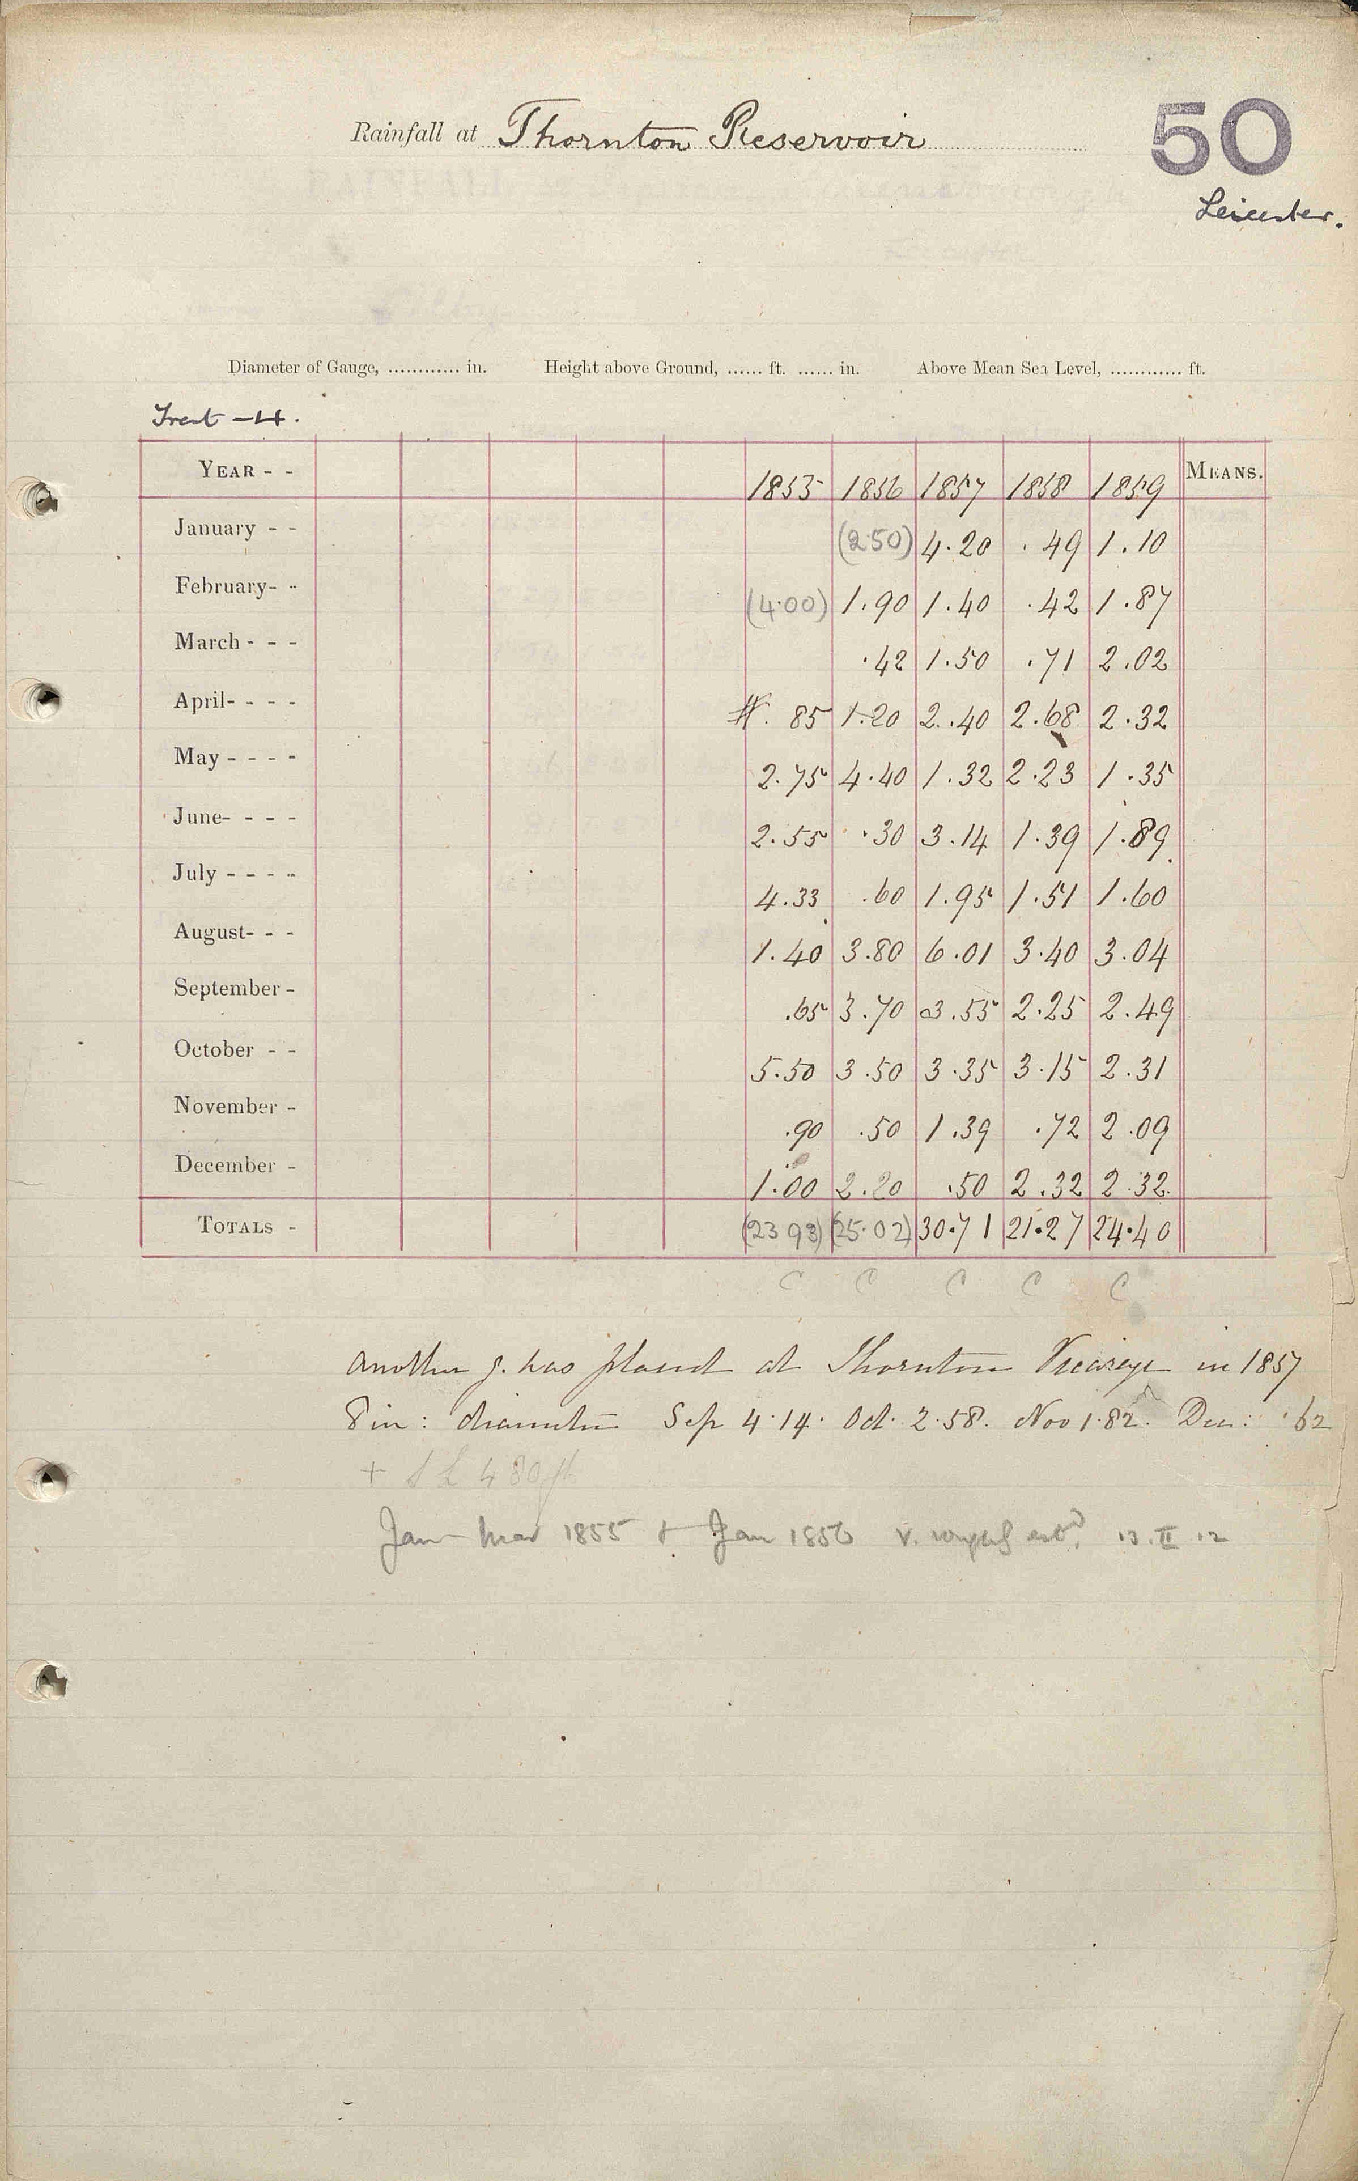 Rainfall at Thornton Reservoir
50
Leicester.
Diameter of Gauge, ............ in. Height above Ground, ...... ft. ...... in. Above Mean Sea Level, ............ ft.
Trent -
YEAR - - 1855 1856 1857 1858 1859 MEANS.
January - - (2.50) 4.20 .49 1.10
February- - (4.00) 1.90 1.40 .42 1.87
March - - - .42 1.50 .71 2.02
April- - - - .85 1.20 2.40 2.68 2.32
May - - - - 2.75 4.40 1.32 2.23 1.35
June- - - - 2.55 .30 3.14 1.39 1.89
July - - - - 4.33 .60 1.95 1.51 1.60
August- - - 1.40 3.80 6.01 3.40 3.04
September - .65 3.70 3.55 2.25 2.49
October - - 5.50 3.50 3.35 3.15 2.31
November - .90 .50 1.39 .72 2.09
December - 1.00 2.20 .50 2.32 2.32
TOTALS - (23 93) (25.02) 30.71 21.27 24.40
C C C C C
Another g. was placed at Thornton Vicarage in 1857
8 in: diameter Sep 4.14. Oct. 2.58. Nov 1.82. Dec: .62
+ S L 480 ft
Jan - Mar 1855 + Jan 1856 v. rough estd. 13.II.12